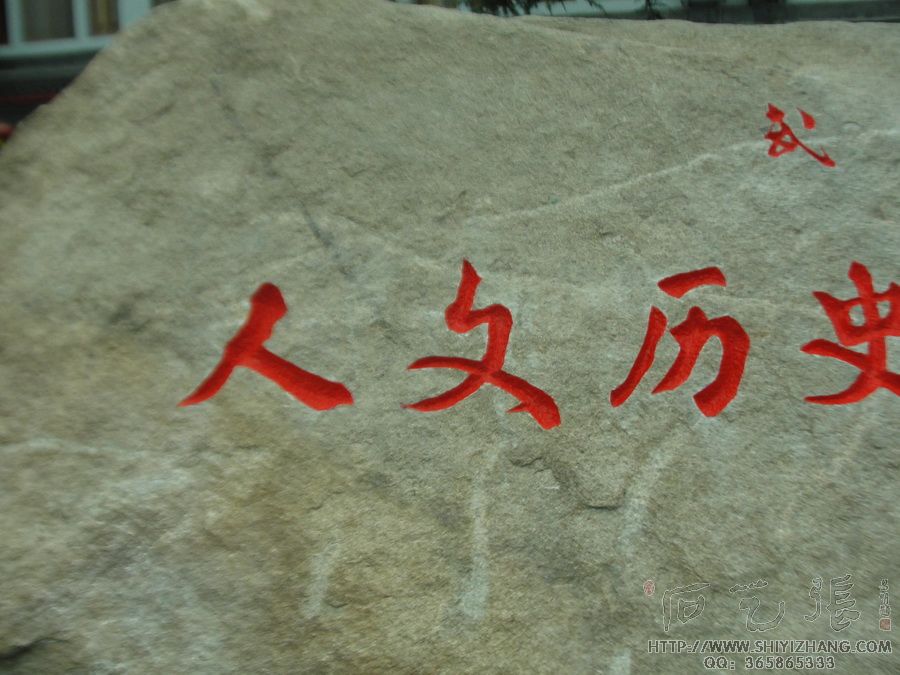 武
人文历史
石艺張
HTTP://WWW.SHIYIZHANG.COM
QQ: 365865333